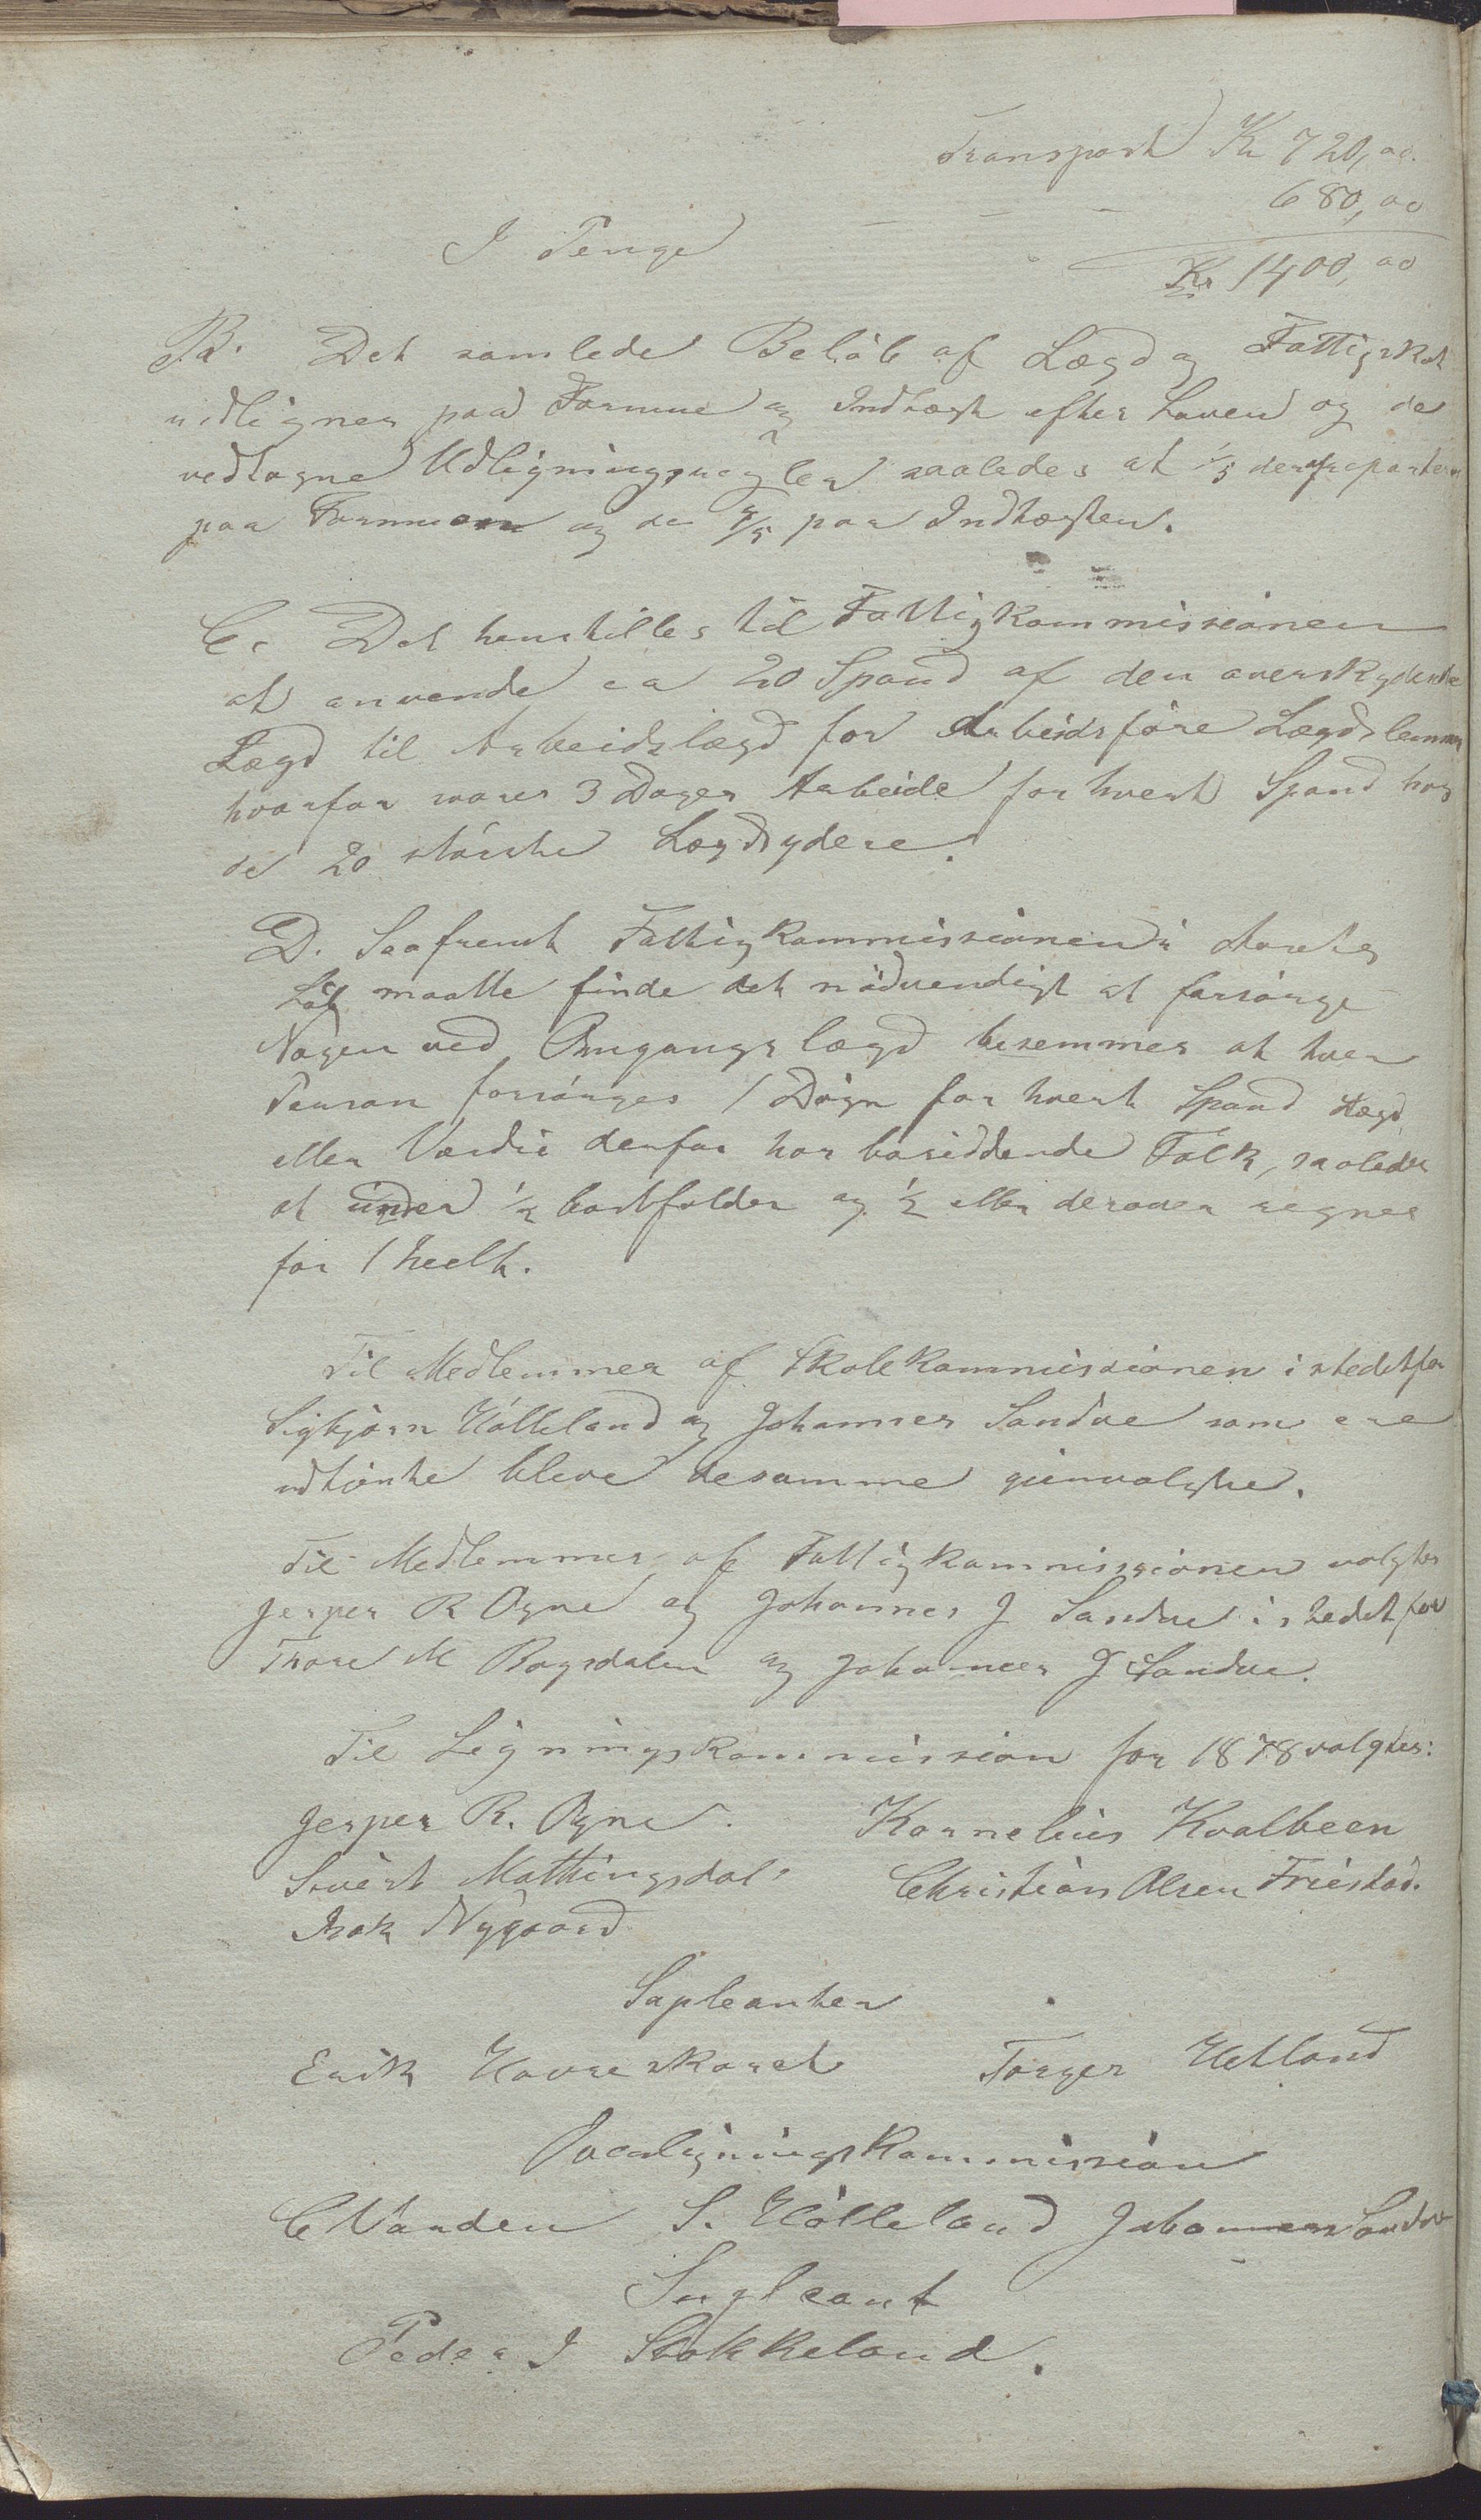 Transport Kr 720,00
I Penge - - - 680,00
Kr 1400,00
B. Det samlede Beløb af Lægd og Fattigskat
udlignes paa Formue og Indtægt efter Loven og de
vedtagne Udligningsregler saaledes at 1/5 deraf reparteres
paa Formuen og de 4/5 paa Indtægten.
C. Det henstilles til Fattigkommissionen
at anvende ca 20 Spand af den overskydende
Lægd til Arbeidslægd for Arbeidsføre Lægdslemmer
hvorfor svares 3 Dages Arbeide for hvert Spand hos
de 20 største Lægdsydere.
D. Saafremt Fattigkommissionen i Aarets
Løb maatte finde det nødvendigt at forsørge
Nogen ved Omgangslægd besemmes at hver
Person forsørges 1 Døgn for hvert Spand Lægd
eller Værdie derfor hos bosiddende Folk, saaledes
at under 1/2 bortfalder og 1/2 eller derover regnes
for 1 heelt.
Til Medlemmer af Skolekommissionen istedetfor
Sigbjørn Hølleland og Johannes Sandve som ere
udtjente bleve desamme gjenvalgte.
Til Medlemmer af Fattigkommissionen valgtes
Jesper R Ogne og Johannes J Sandve istedetfor
Thore M Bogsdalen og Johannes J Sandve.
Til Ligningskommission for 1878 valgtes:
Jesper R. Ogne. Kornelius Kvalbeen
Sivert Mattingsdal Christian Olsen Friestad.
Isak Nygaard
Supleanter
Erik Havreskaret Torger Hetland
Overligningskommission
C Vanden S. Hølleland Johannes Sandve
Supleant
Peder J Stokkeland.